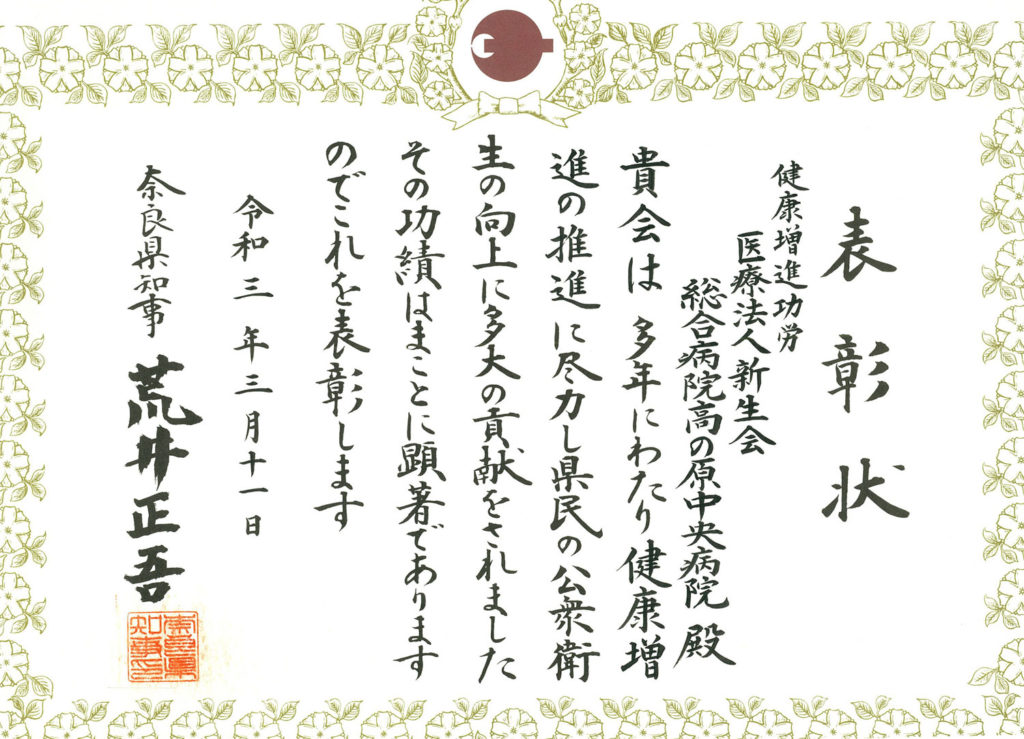 表彰状
健康増進功労
医療法人新生会
総合病院高の原中央病院 殿
貴会は多年にわたり健康増
進の推進に尽力し県民の公衆衛
生の向上に多大の貢献をされました
その功績はまことに顕著であります
のでこれを表彰します
令和三年三月十一日
奈良県知事 荒井正吾
奈良県知事之印